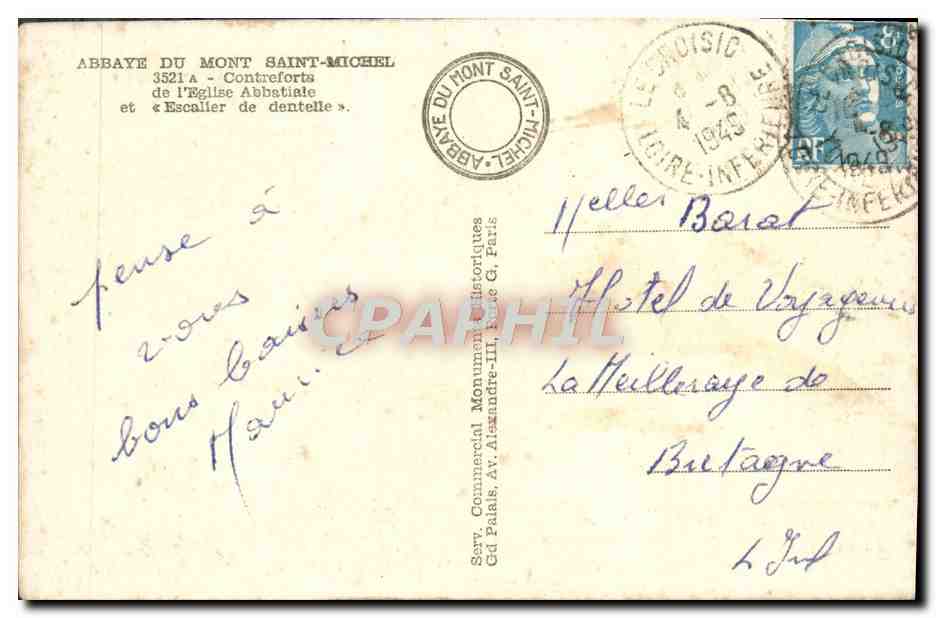 ABBAYE DU MONT SAINT-MICHEL
3521 A - Contreforts
de l'Eglise Abbatiale
et « Escalier de dentelle ».
ABBAYE DU MONT SAINT-MICHEL
LE CROISIC
4 -8
1949
LOIRE-INFERIEURE
8F
RF
1949
pense à
vous
bons baisers
Serv. Commercial Monuments Historiques
Gd Palais, Av. Alexandre-III, Porte G, Paris
Melles Barat
Hotel de Voyageurs
La Meilleraye de
Bretagne
L Inf
CPAPHIL